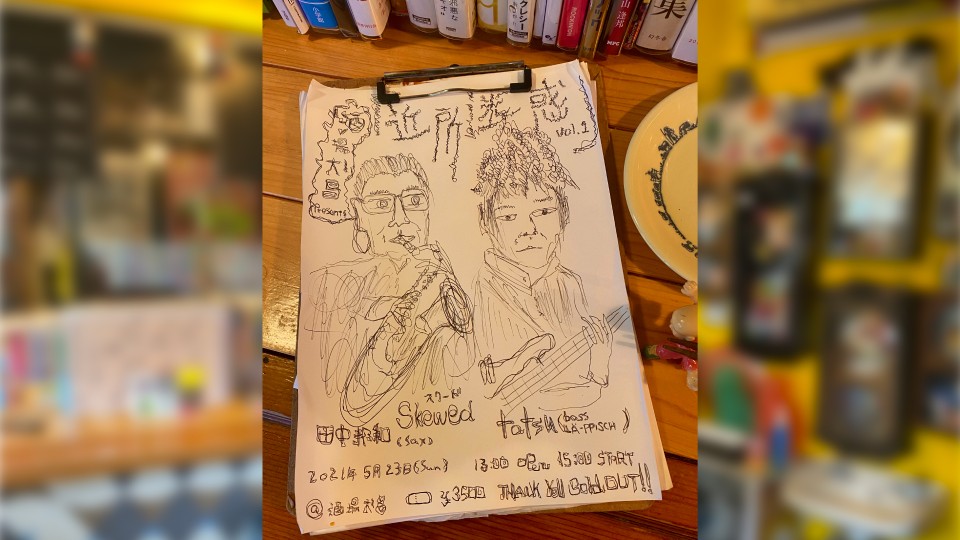 酒場大昌
Presents
近所迷惑
vol.1
スクード
Skewed
田中邦和
(sax)
tatsu (bass LÄ-PPISCH)
2021年 5月23日(Sun) 13:00 OPEN 15:00 START
@酒場大昌 ¥3500 THANK YOU Sold OUT!!